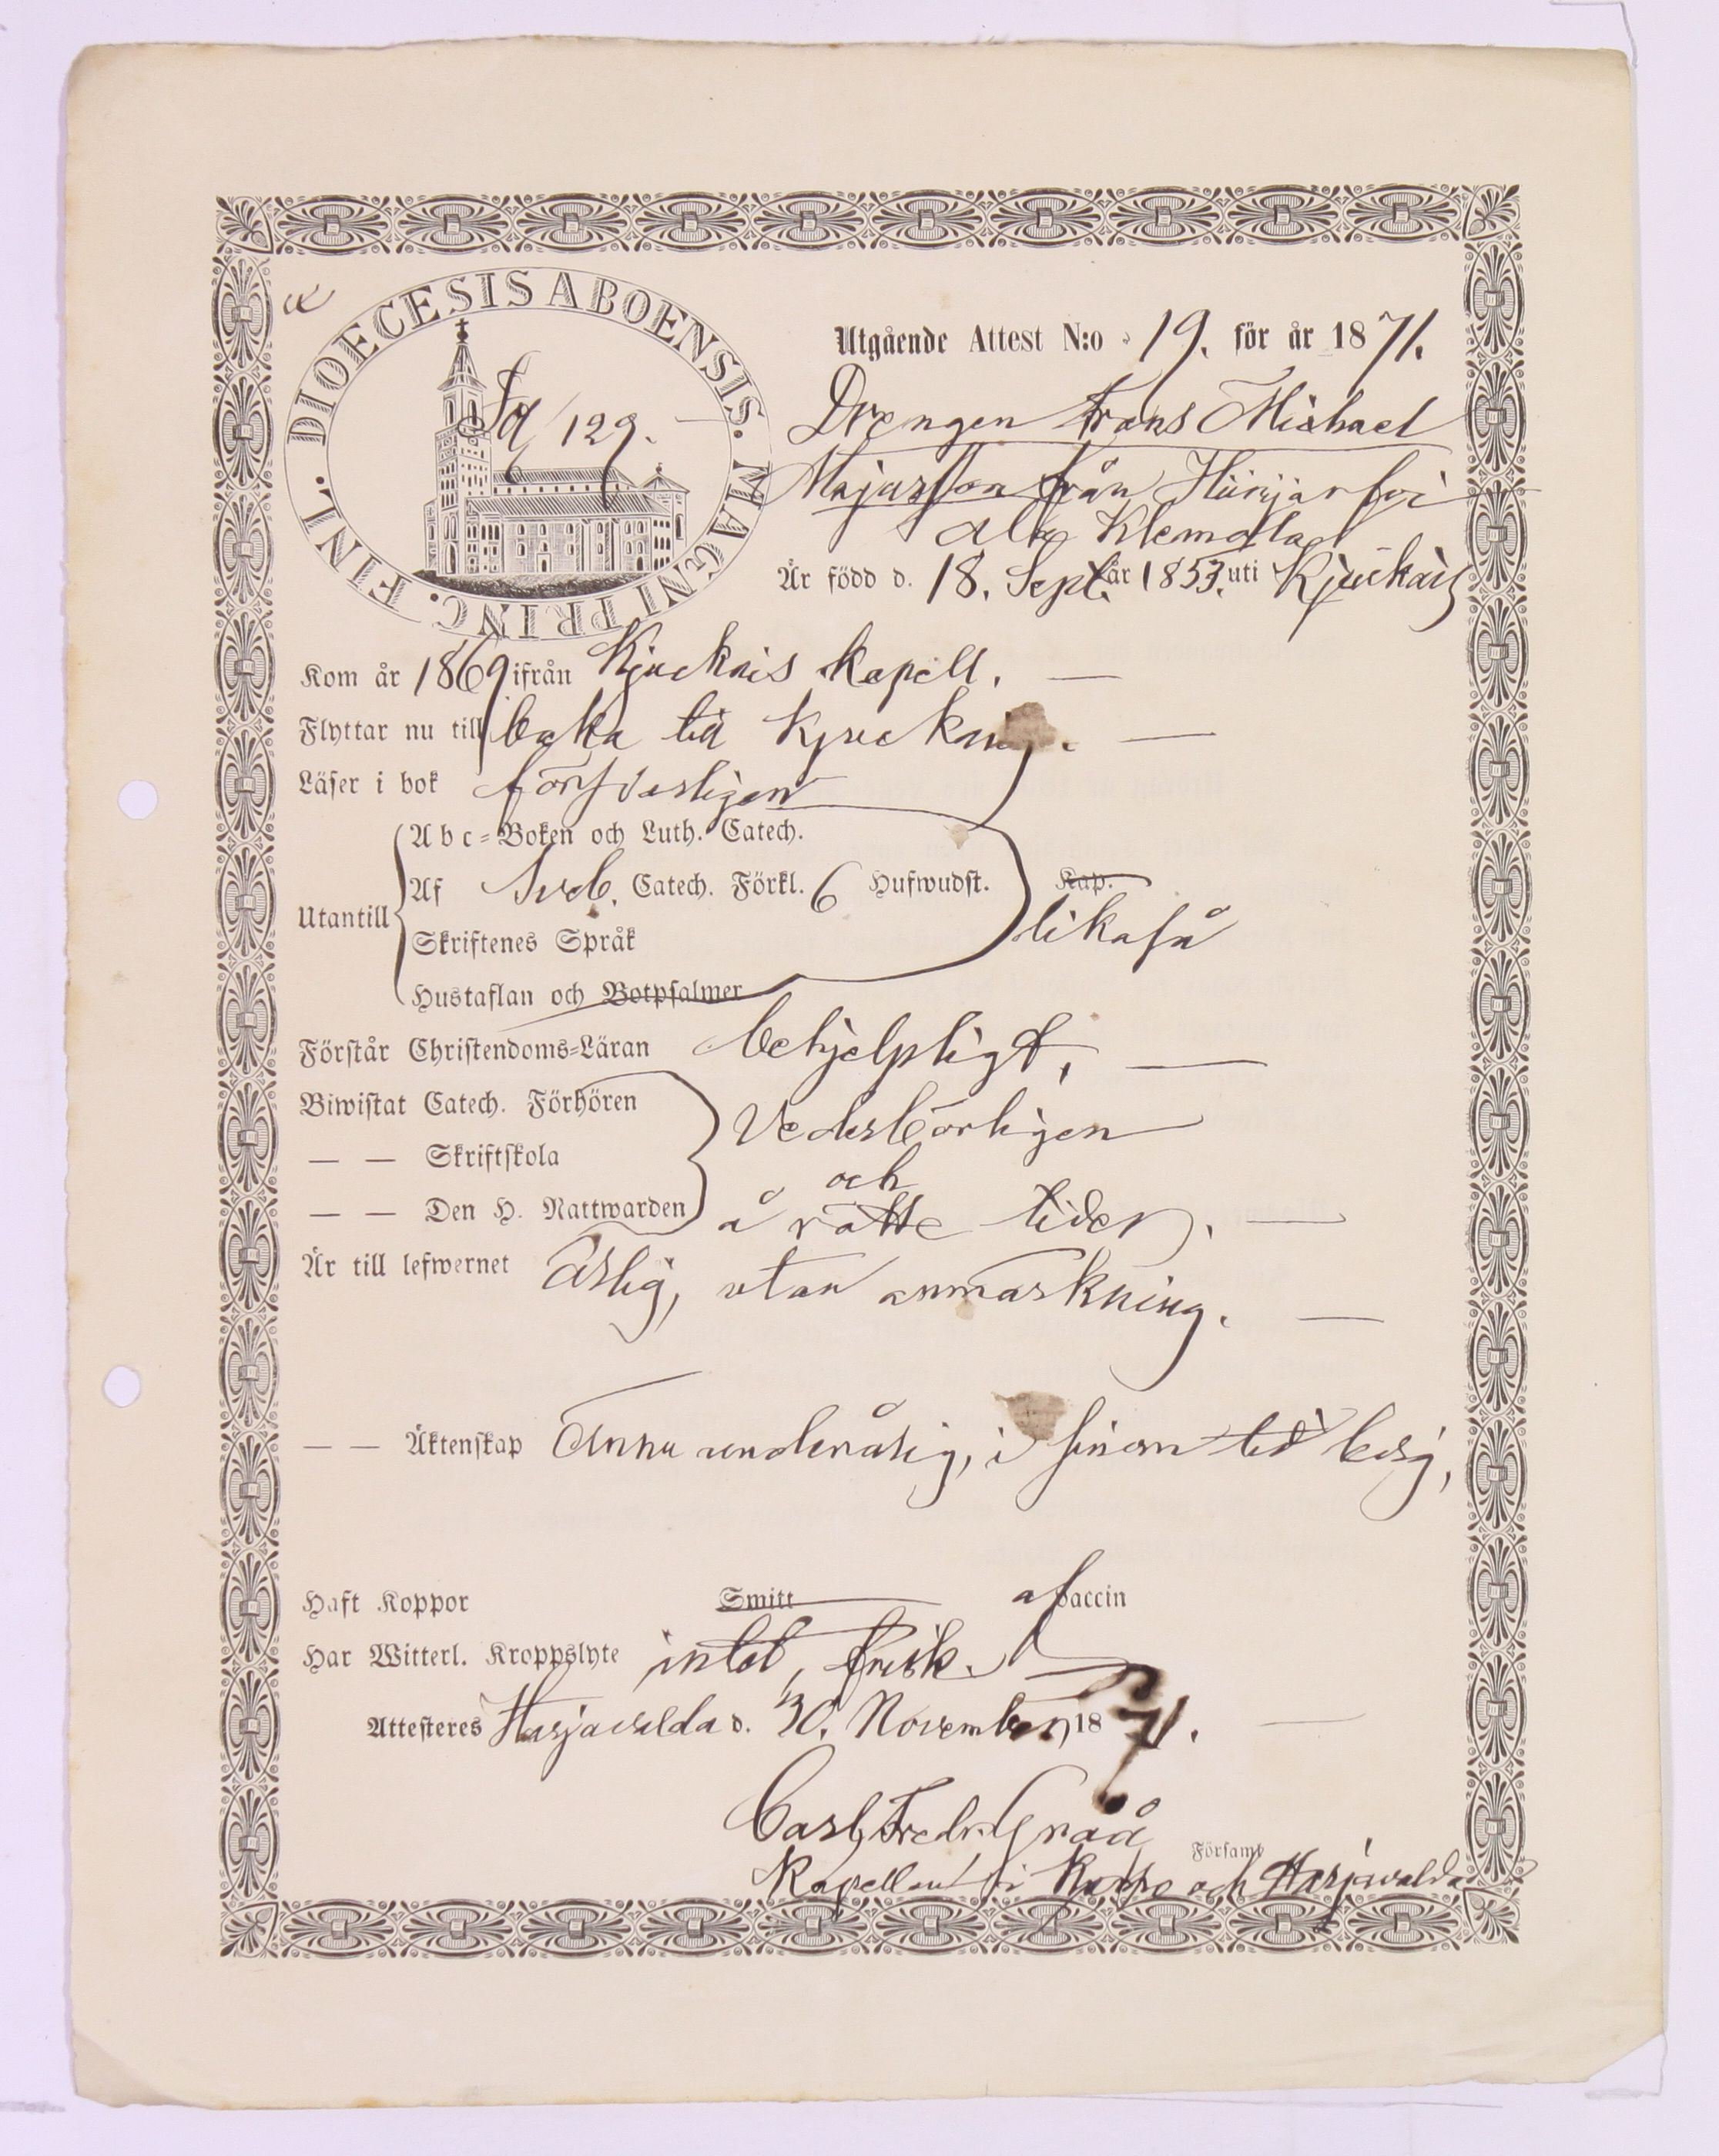 DIOECESIS ABOENSIS. MAGNI PRINC. FINL.
129.
Utgående Attest N:o 19. för år 1871.
Drengen Frans Michael
Majasson från Hiirijärfvi
ala Klemola
Är född d. 18. Sept. år 1853. uti Kjuikais
Kom år 1869 ifrån Kjuckais kapell. —
Flyttar nu till baka till —
Läser i bok försvarligen
Abc-Boken och Luth. Catech.
Af Sveb. Catech. Förkl. 6 Hufwudst. Kap.
Utantill likaså
Skriftenes Språk
Hustaflan och Botpsalmer
Förstår Christendoms-Läran behjelpligt. —
Biwistat Catech. Förhören Vederbörligen
— — Skriftskola och
— — Den H. Nattwarden å rätte tider. —
Är till lefwernet ärlig, utan anmärkning. —
— — Äktenskap Ännu underårig, i sinom tid
Haft Koppor Smitt af Vaccin
Har Witterl. Kroppslyte intet, frisk.
Attesteres Harjavalda d. 30. November 1871. —
Carl Fredr. Gråå
Församl
Kapellan i Kumo och Harjavalda